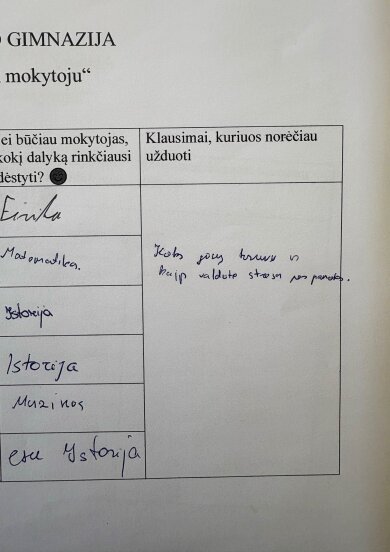 GIMNAZIJA
mokytoju“
ei būčiau mokytojas,
kokį dalyką rinkčiausi
dėstyti?
Klausimai, kuriuos norėčiau
užduoti
Matematika.
kaip valdote stresą per pamokas.
Istorija
Istorija
Muzikos
esu Istorija